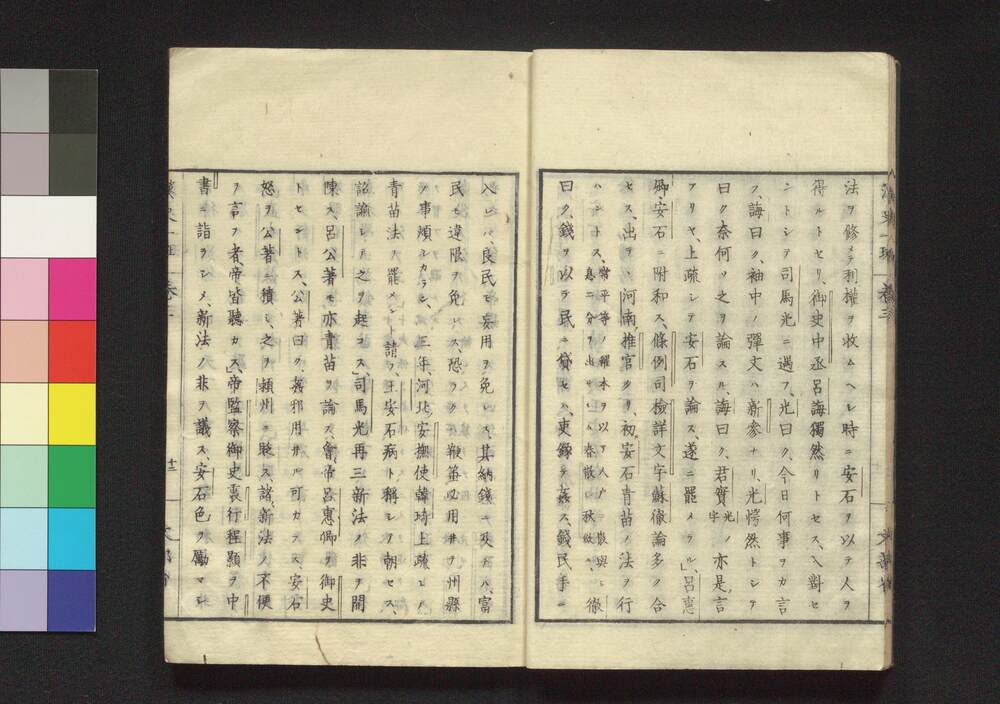 法ヲ修メテ利權ヲ收ムヘシ時ニ安石ヲ以テ人ヲ
得ルトセリ、御史中丞呂誨獨然リトセス、入對セ
ントシテ司馬光ニ遇フ、光曰ク、今日何事ヲカ言
フ、誨曰ク、袖中ノ彈文ハ新參ナリ、光愕然トシテ
曰ク奈何ソ之ヲ論スル誨曰ク、君實光ノ字亦是ノ言
アリヤ、上疏シテ安石ヲ論ス、遂ニ罷メラル」呂惠
卿、安石ニ附和ス、條例司檢詳文字蘇徹論多ク合
セス、出テヽ河南推官タリ、初安石青苗ノ法ヲ行
ハントス、常平等ノ糴本ヲ以テ人戸ニ散與シ
息二分ヲ出サシム春散シテ秋斂ム、徹
曰ク、錢ヲ以テ民ニ貸セハ、吏緣テ姦ス、錢民手ニ
入レハ、良民モ妄用ヲ免レス、其納錢ニ及テハ、富
民モ違限ヲ免レス、恐ラクハ鞭箠必用井ヲ州縣
ノ事煩ルカラン、三年、河北安撫使韓琦上疏シテ
青苗法ヲ罷メント請フ、王安石病ト稱シテ朝セス、
詔諭シテ之ヲ起コス、」司馬光再三新法ノ非ヲ開
陳ス、呂公著モ亦青苗ヲ論ス、會帝呂惠卿ヲ御史
トセントス、公著曰ク、姦邪用井ル可カラス、安石
怒ヲ公著ニ積ミ、之ヲ頴州ニ貶ス、諸新法ノ不便
ヲ言フ者、帝皆聽カス、」帝監察御史裏行程顥ヲ中
書ニ詣ラシメ、新法ノ非ヲ議ス、安石色ヲ勵マシ
十二